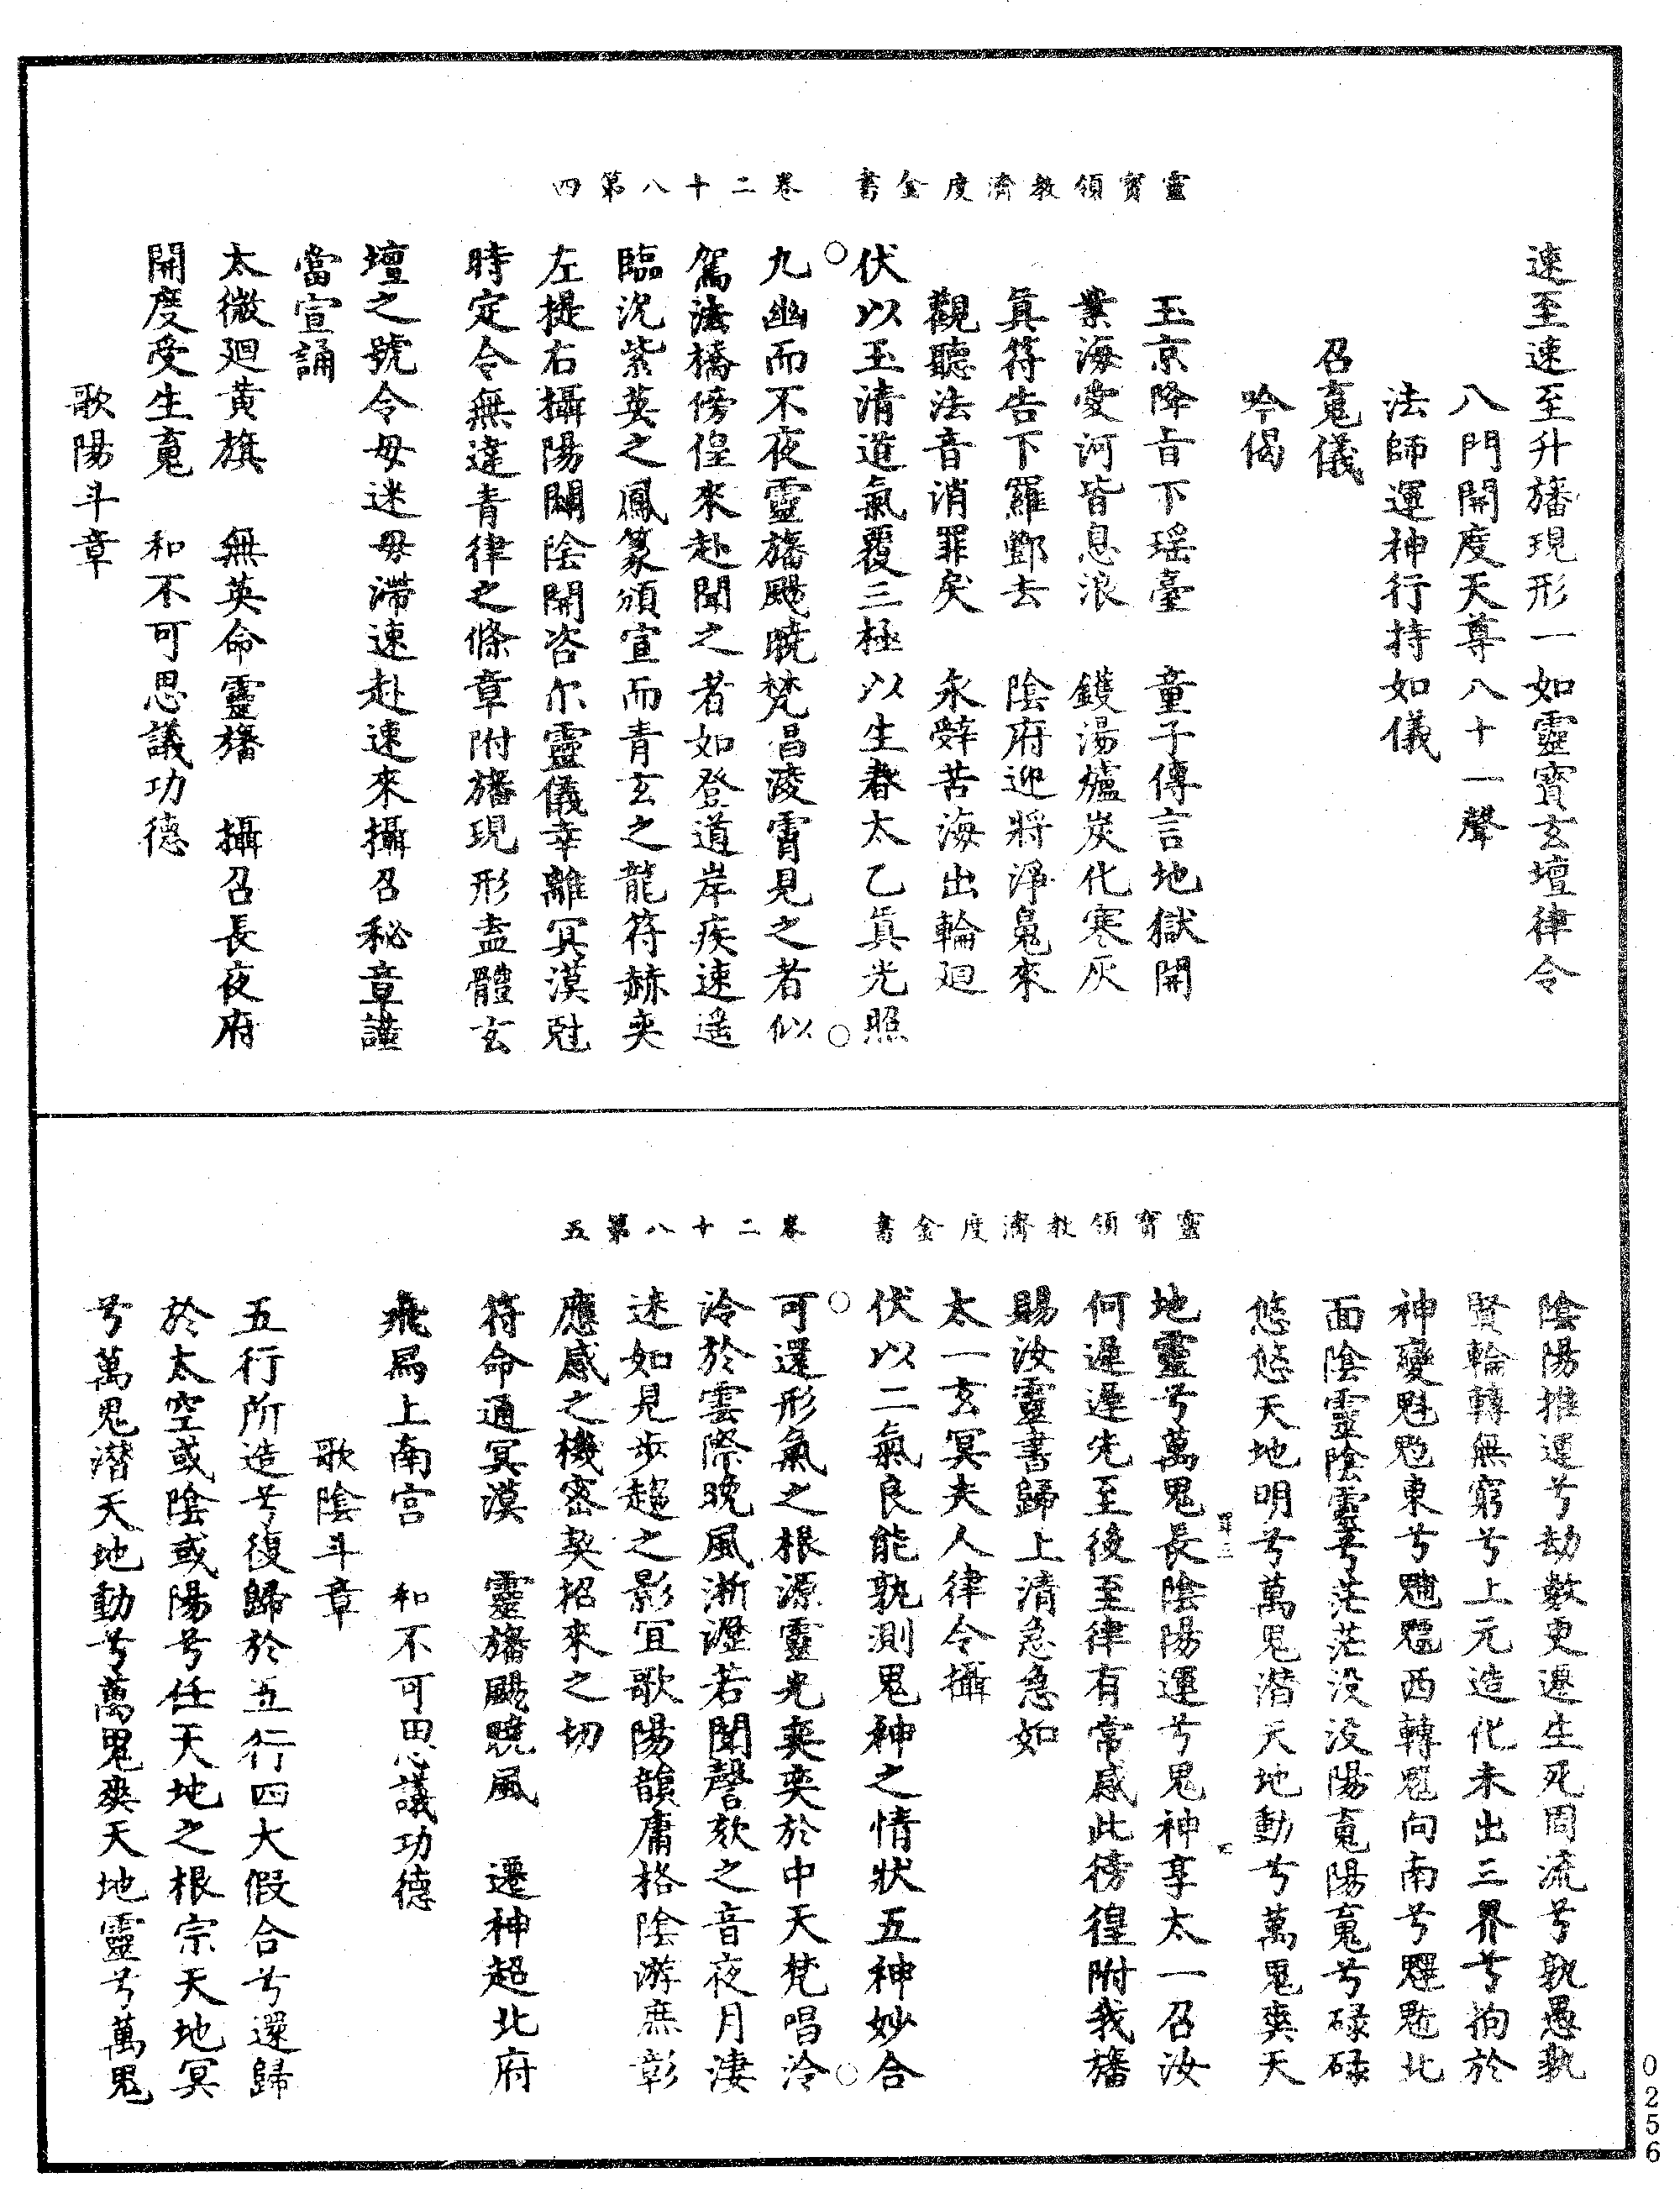 靈寶領教濟度金書　卷二十八第四
速至速至升旛現形一如靈寶玄壇律令
八門開度天尊八十一聲
法師運神行持如儀
召䰟儀
吟偈
玉京降旨下瑶臺　童子傳言地獄開
業海愛河皆息浪　鑊湯爐炭化寒灰
眞符告下羅酆去　陰府迎將淨䰟來
觀聽法音消罪戾　永辤苦海出輪廻
伏以玉清道氣覆三極以生春太乙眞光照
九幽而不夜靈旛颺曉梵唱凌霄見之者似
駕法橋傍徨來赴聞之者如登道岸疾速遙
臨況紫英之鳳篆頒宣而青玄之龍符赫奕
左提右攝陽闢陰開咨尔靈儀幸離冥漠尅
時定令無違青律之條章附旛現形盍體玄
壇之號令毋迷毋滯速赴速來攝召秘章謹
當宣誦
太微廻黄旗　無英命靈旛　攝召長夜府
開度受生䰟　和不可思議功德
歌陽斗章
靈寶領教濟度金書　卷二十八第五
陰陽推運兮劫數更遷生死周流兮孰愚孰
賢輪轉無窮兮上元造化未出三界兮拘於
神變魁䰢東兮䰣䰤西轉魁向南兮䰥䰦北
面陰靈陰靈兮茫茫没没陽䰟陽䰟兮碌碌
悠悠天地明兮萬鬼潜天地動兮萬鬼奭天
地靈兮萬鬼長陰陽運兮鬼神享太一召汝
何遲遲先至後至律有常感此徬徨附我旛
賜汝靈書歸上清急急如
太一玄冥夫人律令攝
伏以二氣良能孰測鬼神之情狀五神妙合
可還形氣之根源靈光奕奕於中天梵唱泠
泠於雲際晚風淅瀝若聞謦欬之音夜月淒
迷如見步趨之影宜歌陽韻庸格陰游庶彰
應感之機密契招來之切
符命通冥漠　靈旛颺曉風　遷神超北府
飛舄上南宫　和不可思議功德
歌陰斗章
五行所造兮復歸於五行四大假合兮還歸
於太空或陰或陽兮任天地之根宗天地冥
兮萬鬼潜天地動兮萬鬼奭天地靈兮萬鬼
0256